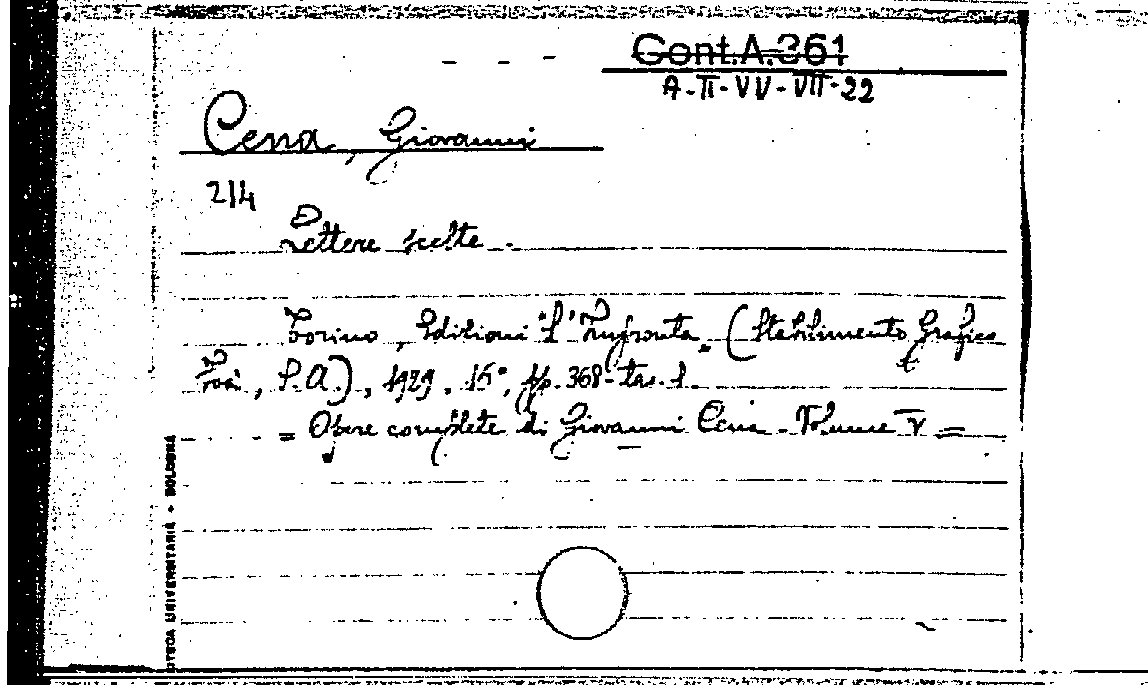 Cont.A.361
A-II-VV-VII-22
Cena, Giovanni
214
Lettere scelte.
Torino, Edizioni "L'Impronta" (Stabilimento Grafico
, S.A.), 1929, 16°, pp. 368-tav. 1.
= Opere complete di Giovanni Cena - Volume V =
OTECA UNIVERSITARIA - BOLOGNA